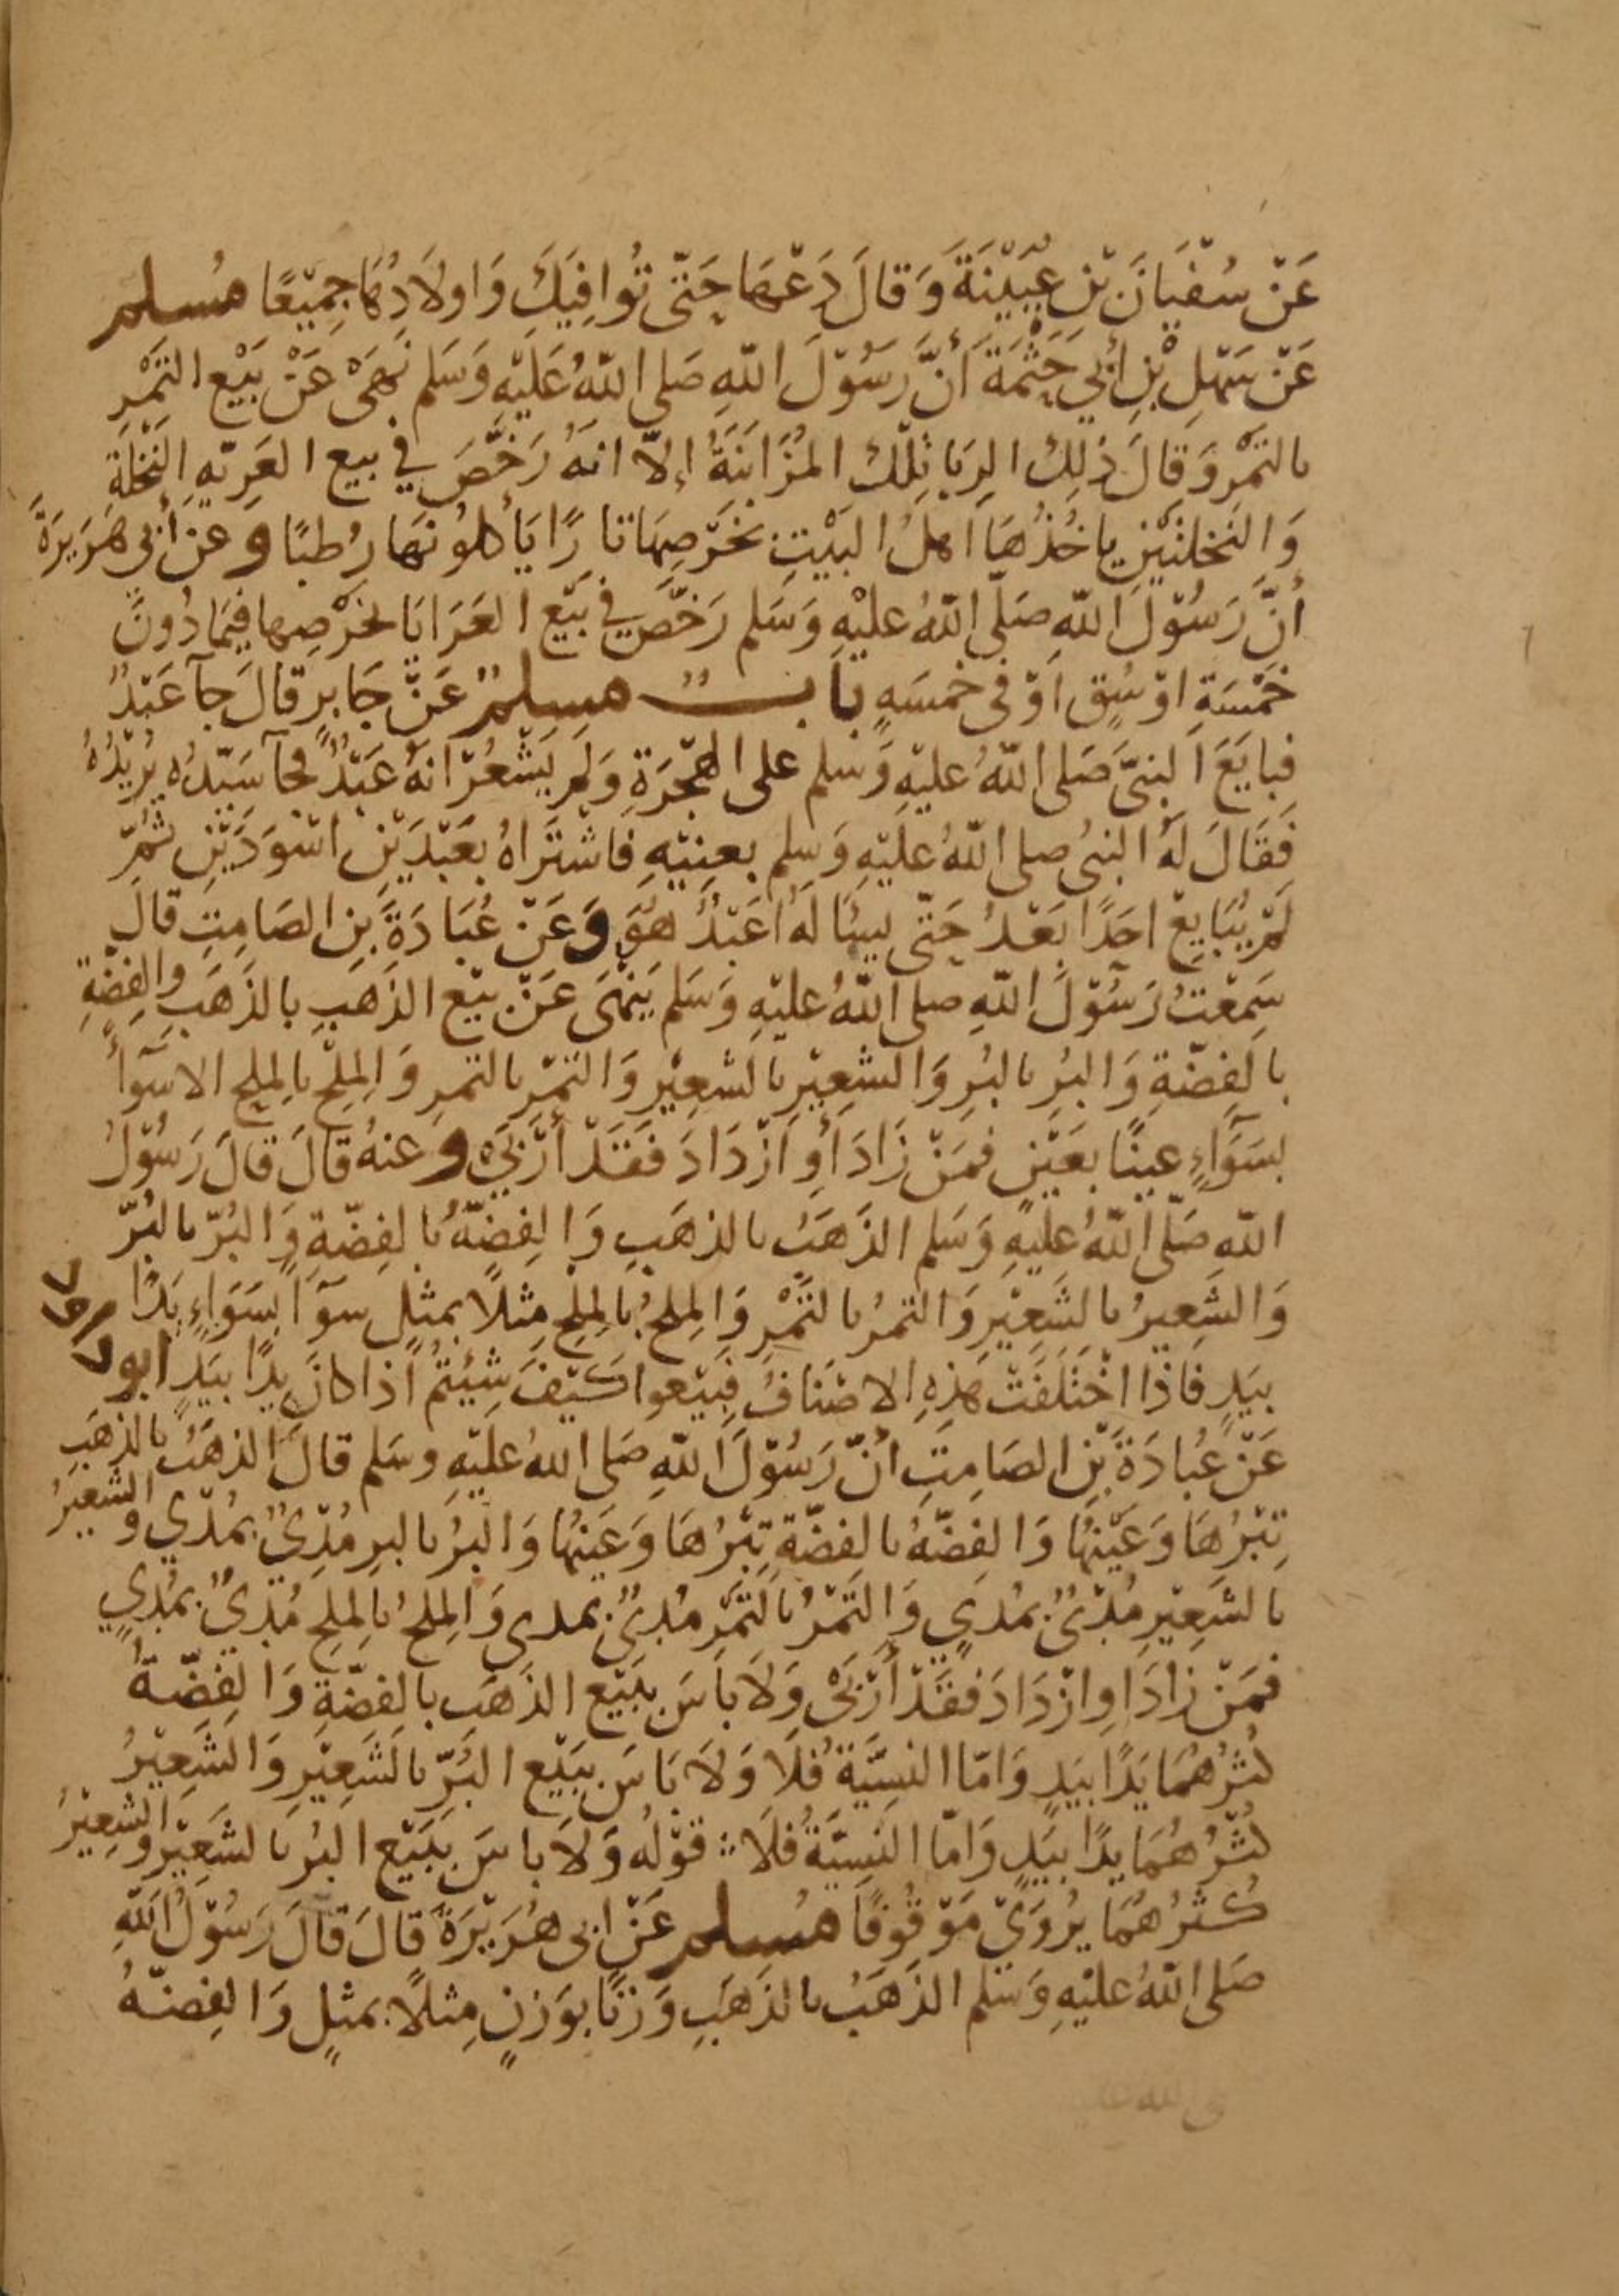 عَنْ سُفْيَانَ بْنِ عُيَيْنَةَ وَقَالَ دَعْهَا حَتّى تُوَافِيَكَ وَاولَادُهَا جَمِيْعًا مُسلم
عَنْ سَهْلِ بْنِ أَبي حَثْمَةَ أَنَّ رَسُوْلَ اللّهِ صَلى اللّهُ عَلَيْهِ وَسَلم نَهَى عَنْ بَيْع التَمْرِ
بالتَمْرِ وَقالَ ذلِكَ الرِبَا تِلْكَ المُزَابَنَةُ إلّا انهُ رَخَّصَ في بيع العَرِيّهِ النَخْلَةِ
وَالنَخلتَيْنِ ياخُذُهَا اَهلُ البَيْتِ بخَرْصِهَا تمرًا يَأْكلُونهَا رُطبًا وعَن أَبي هُرَيرَةَ
أَنَّ رَسُوْلَ اللّهِ صَلّى اللّهُ عليْهِ وَسَلم رَخَّصَ في بَيْع العَرَايَا بخَرْصِها فيمَا دُونَ
خَمْسَةِ اوْسُقٍ اَوْ في خَمسَهٍ بَابٌ مسلم عَنْ جَابِرٍ قالَ جآ عَبْدٌ
فبايَعَ اَلنبيَّ صَلى اللّهُ عليْهِ وَسلم على الهِجْرَةِ وَلَم يَشْعُرْ انهُ عَبْدٌ فجآ سَيّدُه يُرِيْدُهُ
فَقَالَ لَهُ النبيُ صلى اللّهُ عليْهِ وَسلم بعِنِيْهِ فَاشْتَرَاهُ بعَبْدَيْنِ اسْوَدَيْنِ ثُمّ
لَمْ يُبَايِعْ احَدًا بَعْدُ حَتّى يسئَالَهُ اَعَبْدٌ هُوَ وَعَنْ عُبَادَةَ بنِ الصَامِتِ قالَ
سَمِعْتُ رَسُوْلَ اللّهِ صلى اللّهُ عليْهِ وَسَلم يَنْهَى عَنْ بيْع الذَهَبِ بالذَهَبِ والفِضّةِ
بالفِضّةِ وَالبُرِ بالبُرِ وَالشعِيْرِ بالشعِيْرِ وَالتمْرِ بالتمرِ وَالمِلْح بالمِلح الا سَوَآأً
بسَوَآءٍ عينًا بعَيْنٍ فمَنْ زَادَ أَوِ اَزْدَادَ فَقَدْ أَرْبَى وعنهُ قَالَ قالَ رَسُوْلُ
اللّهِ صَلّى اللّهُ عليْهِ وَسَلم الذَهَبُ بالذهَبِ وَالفِضّةُ بالفِضّةِ وَالبُرّ بالبُرّ
وَالشعِيرُ بالشَعِيْرِ وَالتمرُ بالتَمْرِ وَالمِلحُ بالمِلْحِ مِثلًا بمثلٍ سوَآ بسَوَاءٍ يَدًا
بيَدٍ فَاذَا اخْتَلَفَتْ هذِهِ الاصْنَافُ فبِيْعوا كَيْفَ شِئتُمْ اذَا كانَ يدًا بيَدٍ ابوُ د
عَنْ عُبادَةَ بْنِ الصَامِتِ أَنّ رَسُوْلَ اللّهِ صَلى اللهُ عليْهِ وسَلم قالَ الذهَبُ بالذهَبِ
تِبْرُهَا وَعَيْنُهَا وَالفِضّهُ بالفِضّةِ تِبْرُهَا وَعَيْنُهَا وَالبُرُ بالبرِ مُدْيٌ بمُدْي وَالشعِيْرُ
بالشَعِيْرِ مُدْيٌ بمُدي وَالتَمْرُ بالتَمْرِ مُدْيٌ بمدى وَالمِلحُ بالمِلح مُدْيٌ بمُدي
فمَنْ زادَ اَوِ ازْدَادَ فقَدْ أَرْبَى وَلَا باَسَ ببَيْع الذهَب بالفِضّةِ وَالفِضّةُ
اكثرُهُمَا يَدًا بيَدٍ وَامّا النسِيَّةُ فلَا وَلَا بَاسَ ببَيْع البُرّ بالشَعِيْرِ وَالشعِيْرُ
اكثرُهُمَا يدًا بيَدٍ وَامّا النَسِيَّةُ فلَا قوْلُه وَلَا باسَ ببَيْع البُر بالشعِيْرِ وَالشعِيْرُ
كثرُهُمَا يُرْوَى مَوْقُوْفًا مُسلم عَنْ ابى هُرَيْرَةَ قَالَ قالَ رَسُوْلُ اللّهِ
صَلى اللّهُ عليْهِ وَسَلم الذَهَبُ بالذَهَبِ وَزنًا بوَزنٍ مِثلًا بمثلٍ وَالفِضّهُ